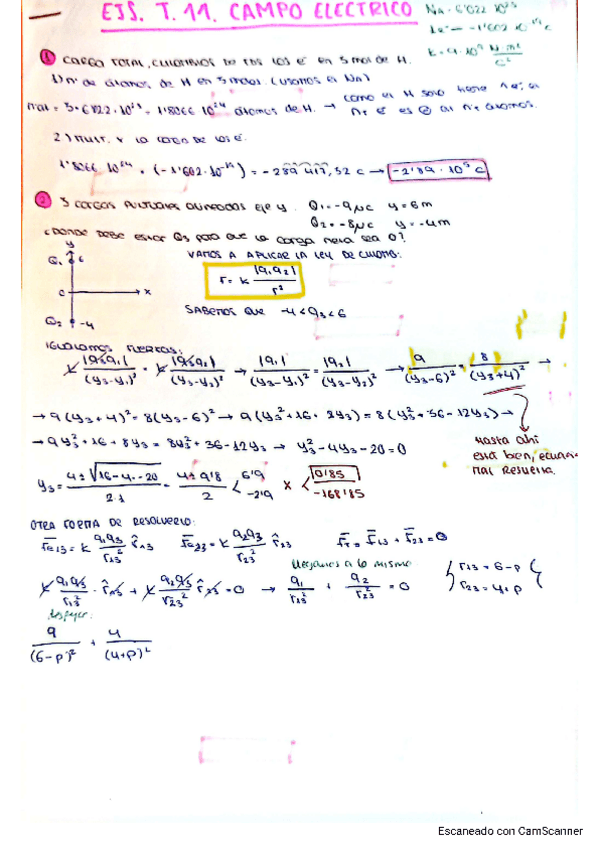 EJS. T. 11. CAMPO ELECTRICO
NA = 6'022 10²³
1e⁻ = -1'602 · 10⁻¹⁹ C
K = 9 · 10⁹ N m² / C²
① CARGA TOTAL, CULOMBIOS DE TDS LOS é EN 3 mol de H.
1) nº de átomos de H en 3 moles (usamos el NA)
= 3 · 6'022 · 10²³ = 1'8066 10²⁴ átomos de H. →
como el H solo tiene 1 e⁻, el
nº é es = al nº átomos.
2) mult. x la carga de los é.
1'8066 10²⁴ · (-1'602 · 10⁻¹⁹) = -289 417,32 C → -2'89 · 10⁵ C
② 3 cargas puntuales eje y. Q₁ = -9 μC y = 6m
Q₂ = -8 μC y = -4m
¿DONDE DEBE ESTAR Q₃ para que la carga neta sea 0?
y
Q₁ 6
VAMOS A APLICAR LA LEY DE CULOMB:
F = K |q₁q₂| / r²
0 x
Q₂ -4
SABEMOS QUE -4 < q₃ < 6
IGUALAMOS FUERZAS:
K |q₃q₁| / (y₃-y₁)² = K |q₃q₂| / (y₃-y₂)² → |q₁| / (y₃-y₁)² = |q₂| / (y₃-y₂)² → 9 / (y₃-6)² = 8 / (y₃+4)² →
→ 9(y₃+4)² = 8(y₃-6)² → 9(y₃²+16+8y₃) = 8(y₃²+36-12y₃) →
→ 9y₃²+16+8y₃ = 8y₃²+36-12y₃ → y₃²-4y₃-20=0
hasta ahí
está bien, ecuación
mal resuelta.
y₃ = 4 ± √16-4·-20 / 2·1 = 4 ± 9'8 / 2 < 6'9 -2'9 X < 0'85 -168'85
OTRA FORMA DE RESOLVERLO:
F̄e₁₃ = K q₁q₃ / r₁₃² r̂₁₃ F̄e₂₃ = K q₂q₃ / r₂₃² r̂₂₃ F̄T = F̄₁₃ + F̄₂₃ = 0
Llegamos a lo mismo
K q₁q₃ / r₁₃² · r̂₁₃ + K q₂q₃ / r₂₃² r̂₂₃ = 0 → q₁ / r₁₃² + q₂ / r₂₃² = 0
r₁₃ = 6-p
r₂₃ = 4+p
9 / (6-p)² + 4 / (4+p)²
Escaneado con CamScanner